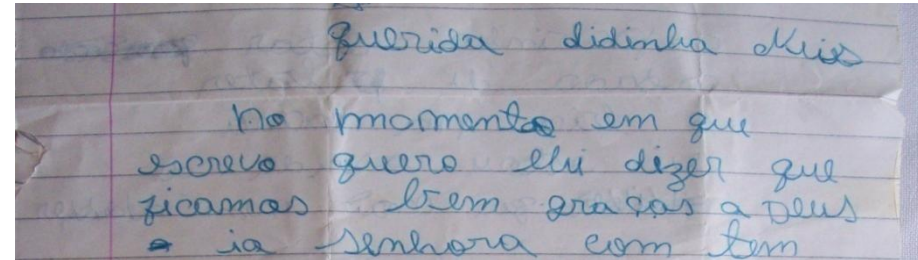 querida didinha
no momento em que
escrevo quero lhi dizer que
ficamos bem graças a Deus
ia senhora com tem